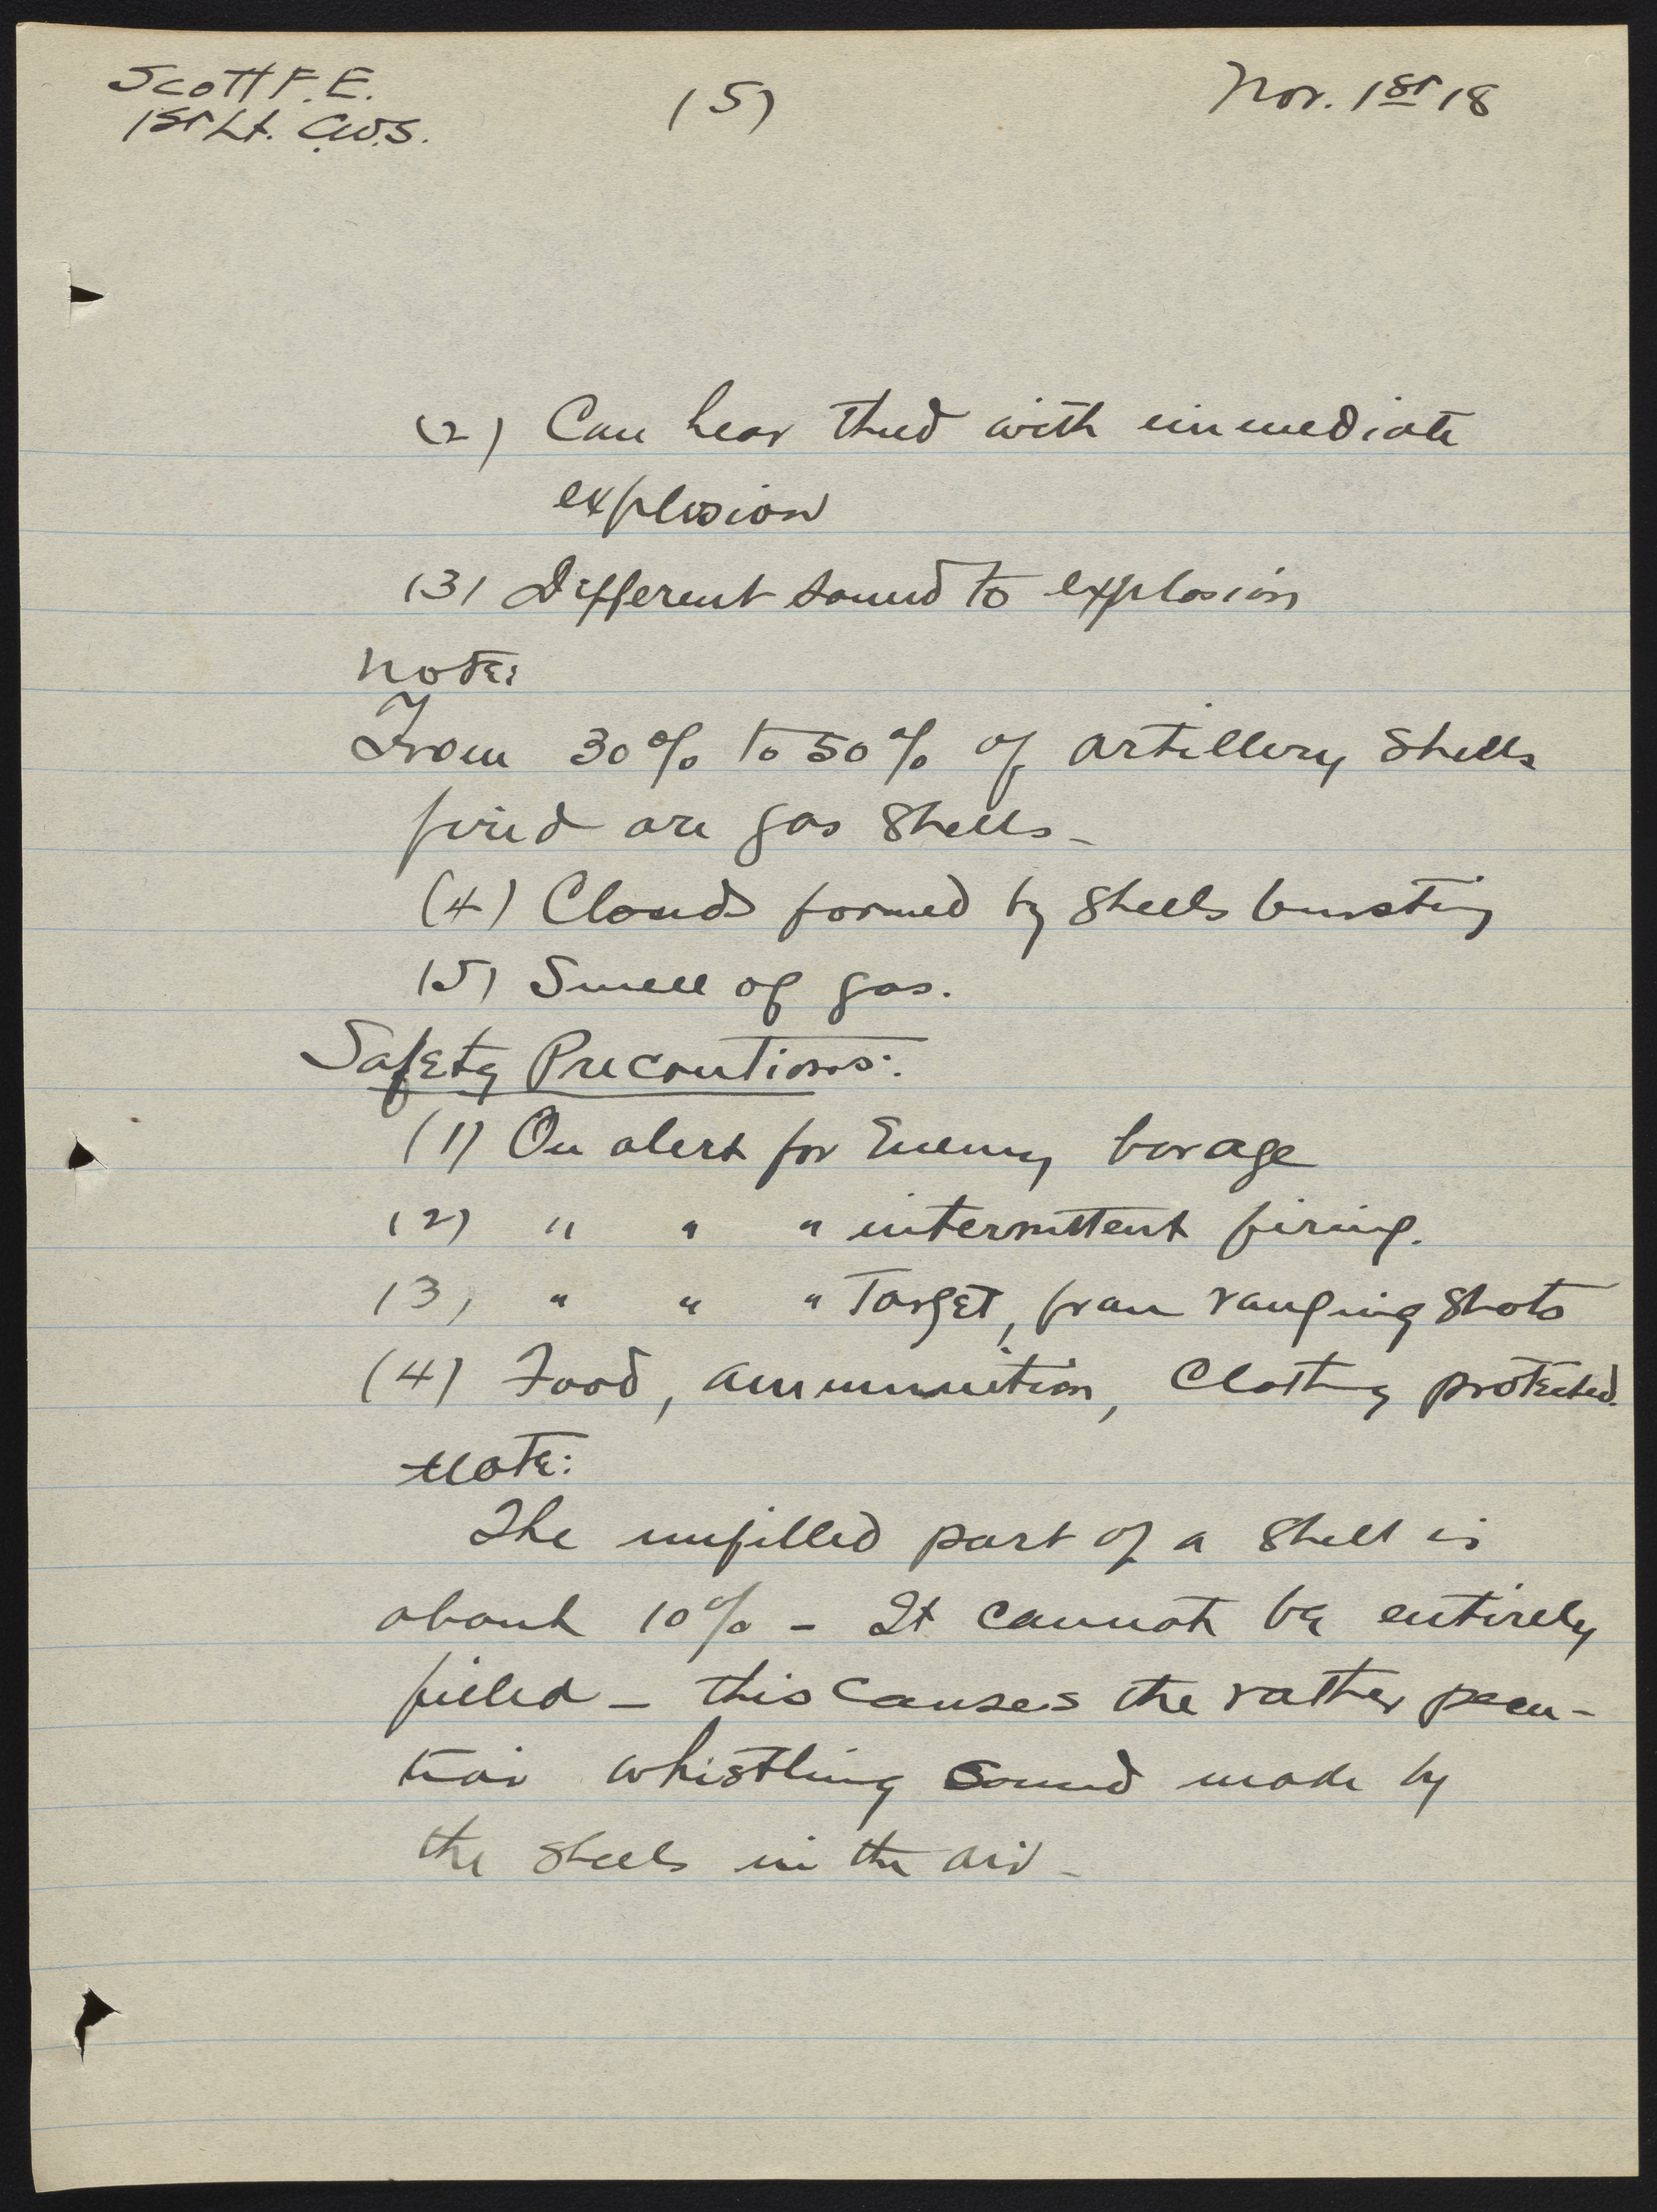 Scott F. E.
1st Lt. C.W.S.
(5)
Nov. 1st 18
(2) Can hear thud with immediate
explosion
(3) Different sound to explosion
Note:
From 30% to 50% of artillery shells
fired are gas shells -
(4) Clouds formed by shells bursting
(5) Smell of gas.
Safety Precautions:
(1) On alert for Enemy barage
(2) " " " intermittent firing.
(3) " " " Target, from ranging shots
(4) Food, ammunition, Clothing protected.
Note:
The unfilled part of a shell is
about 10% - It cannot be entirely
filled - this causes the rather pecu-
liar whistling sound made by
the shells in the air -